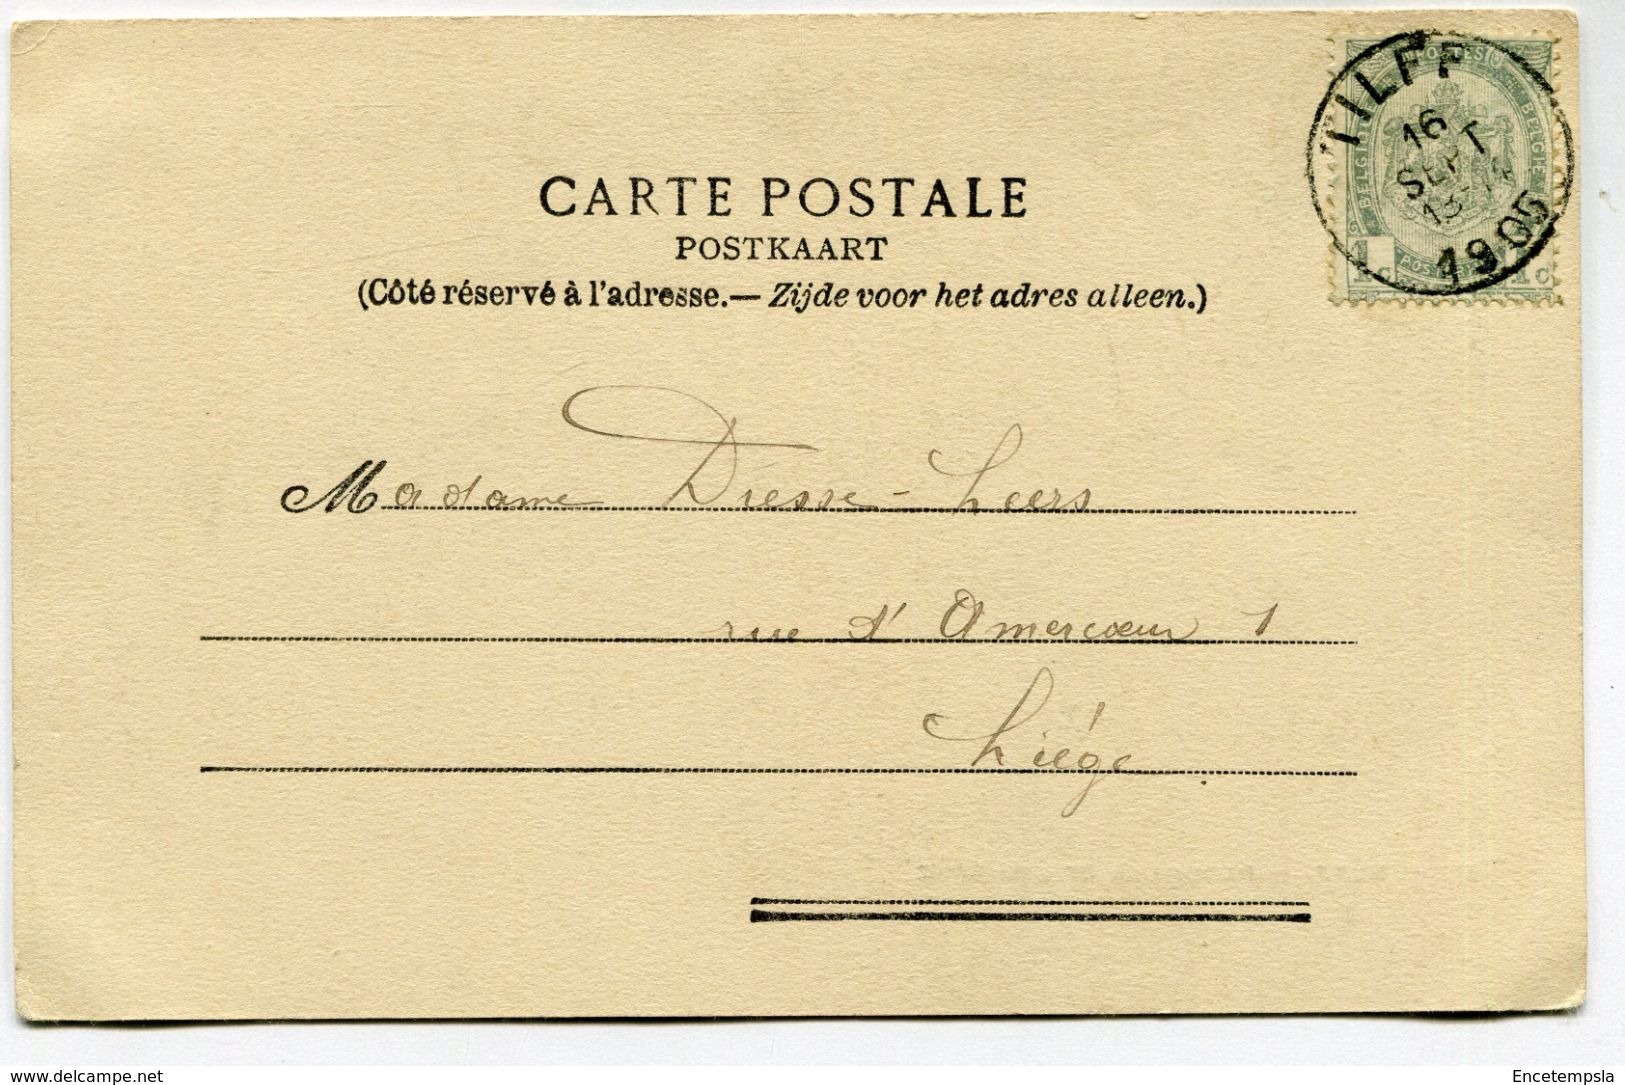 TILFF
16
SEPT
13
1905
POSTES
BELGIQUE
BELGIE
1c
1c
CARTE POSTALE
POSTKAART
(Côté réservé à l'adresse.— Zijde voor het adres alleen.)
Madame Diesse-Leers
rue d'Amercœur 1
Liége
www.delcampe.net
Encetempsla